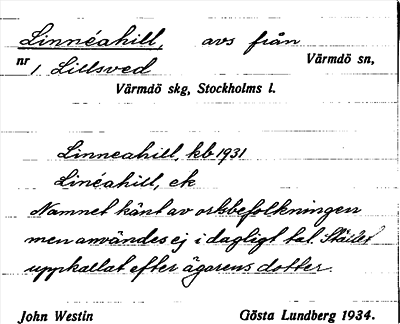 Linnéahill, avs från
nr 1 Lillsved Värmdö sn,
Värmdö skg, Stockholms l.
Linneahill, kb 1931
Linéahill, ek
Namnet känt av ortsbefolkningen
men användes ej i dagligt tal. Stället
uppkallat efter ägarens dotter.
John Westin Gösta Lundberg 1934.